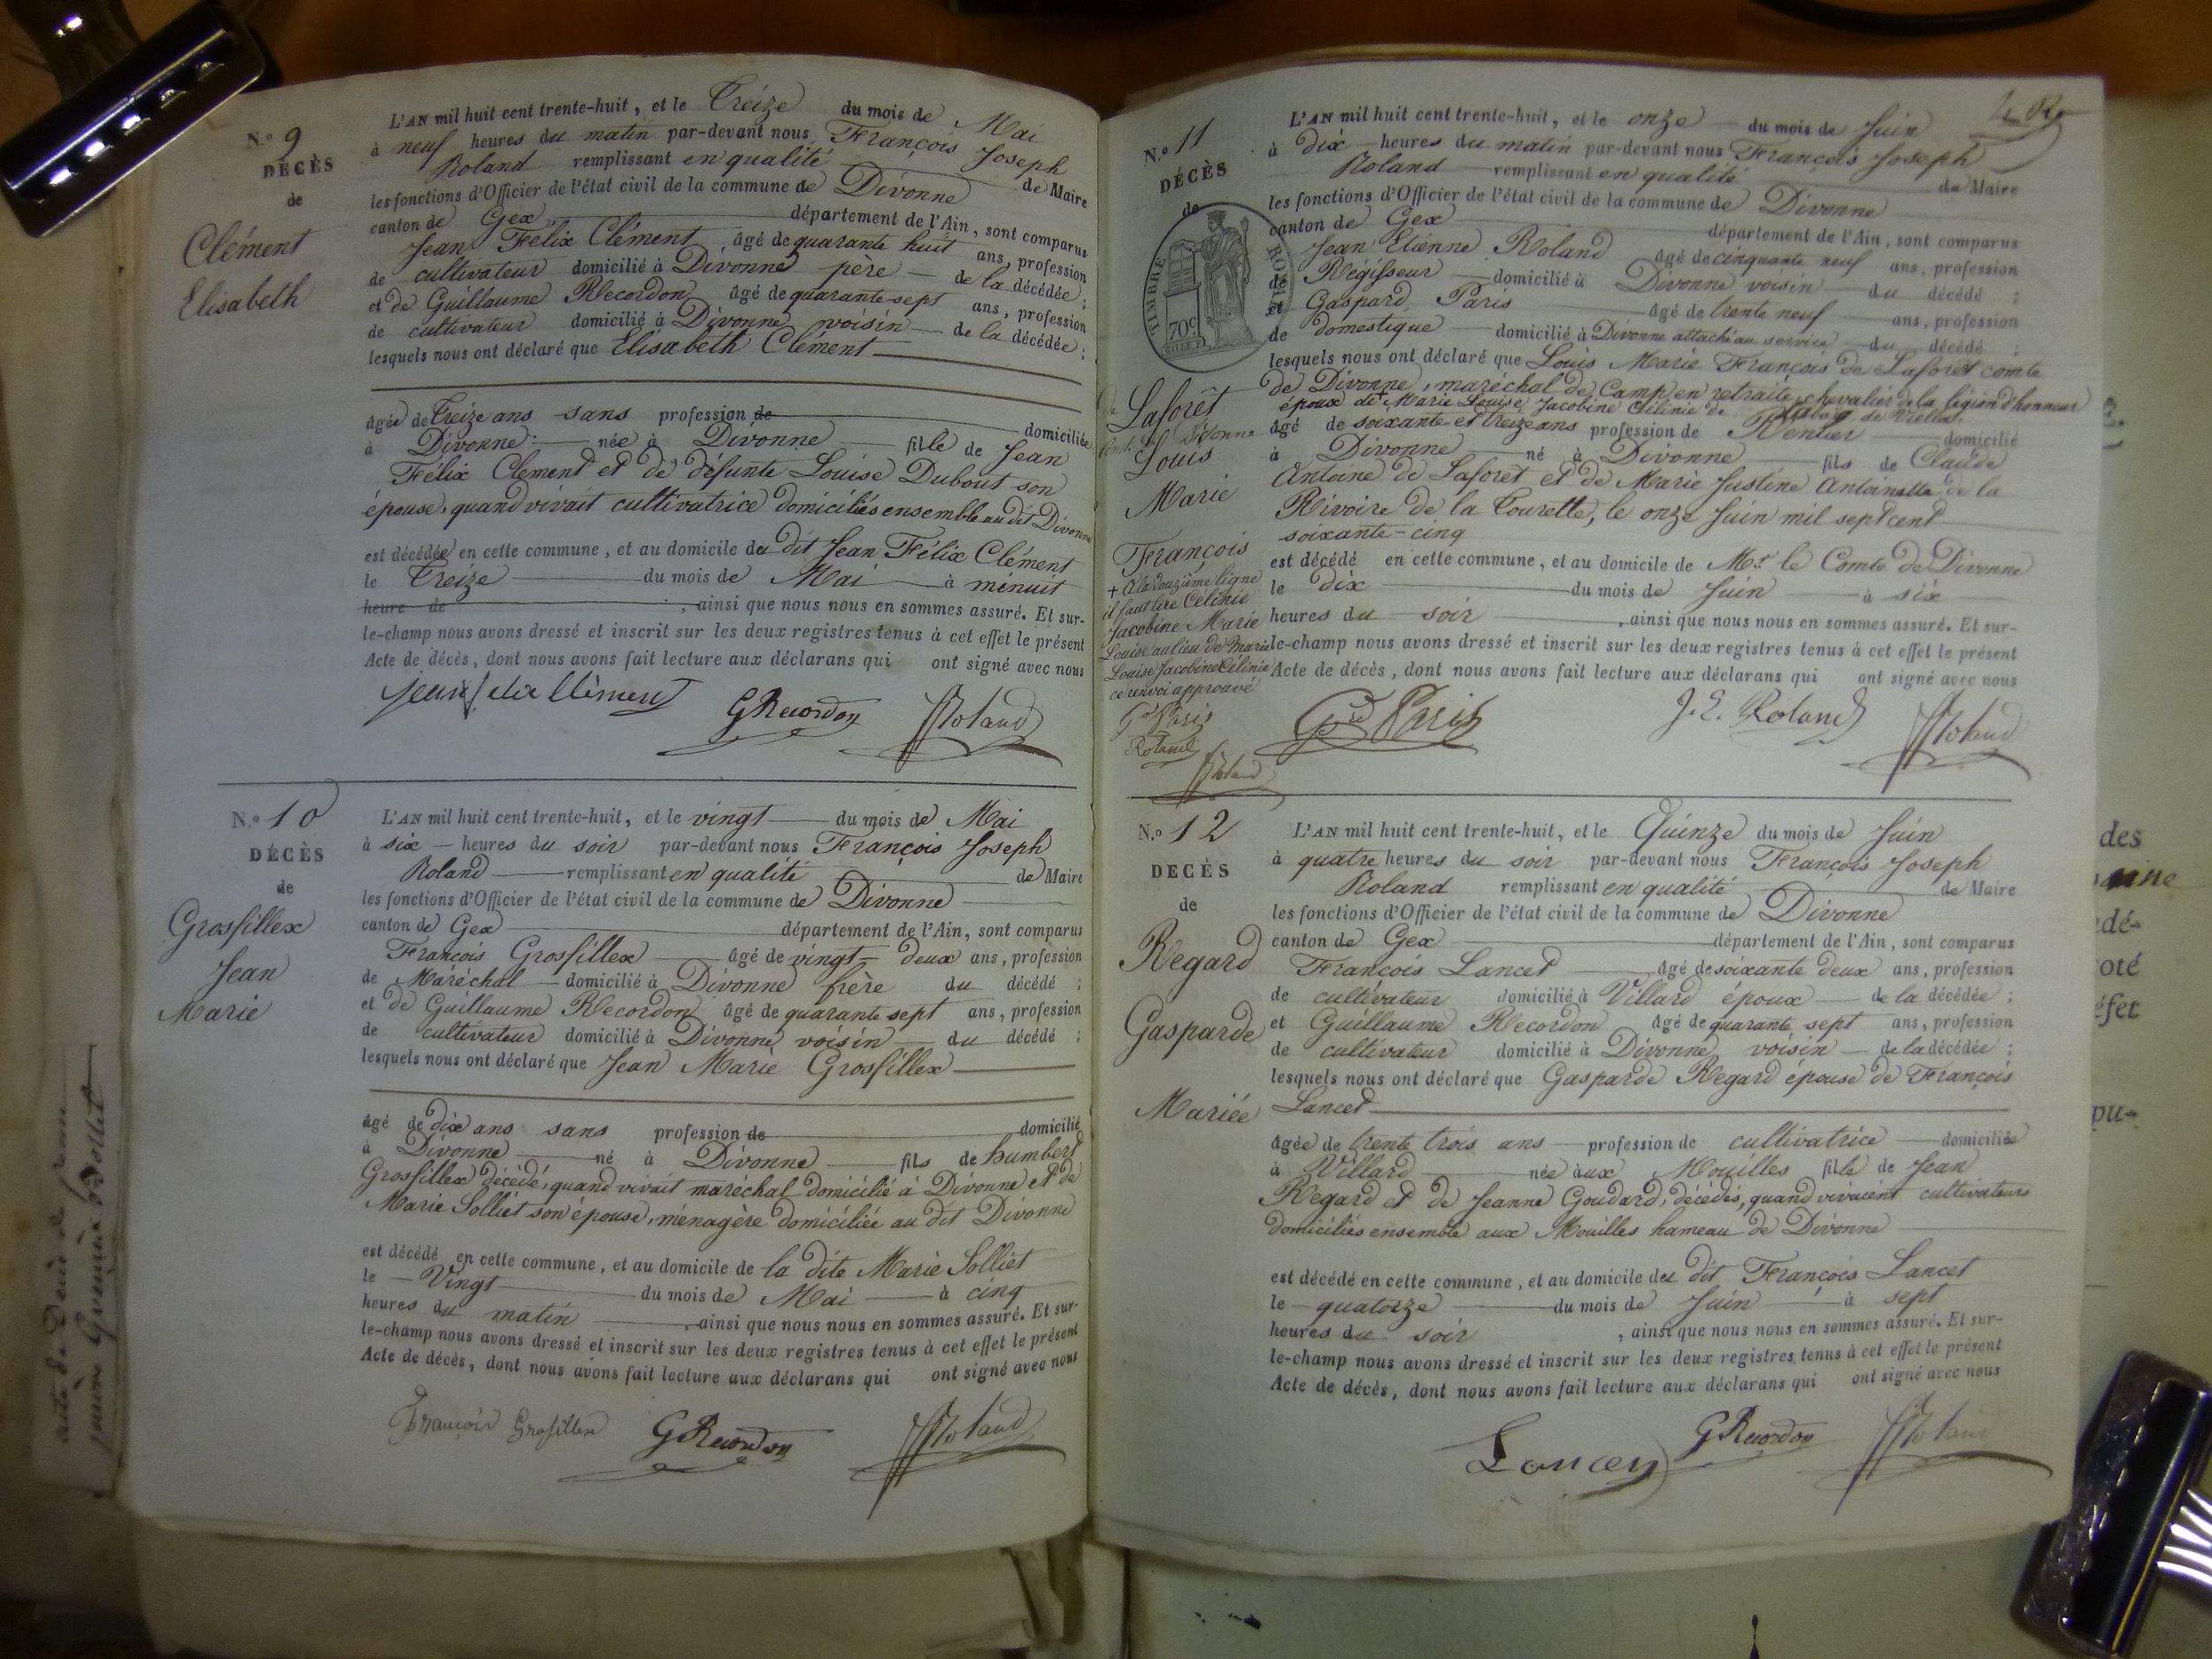 N.º 9
DÉCÈS
de
Clément
Elisabeth
L'AN mil huit cent trente-huit, et le Treize du mois de Mai
à neuf heures du matin par-devant nous François Joseph
Roland remplissant en qualité de Maire
les fonctions d'Officier de l'état civil de la commune de Divonne
canton de Gex département de l'Ain, sont comparus
Jean Félix Clément âgé de quarante huit ans, profession
de cultivateur domicilié à Divonne père de la décédée ;
et de Guillaume Recordon âgé de quarante-sept ans, profession
de cultivateur domicilié à Divonne voisin de la décédée ;
lesquels nous ont déclaré que Elisabeth Clément
âgée de Treize ans sans profession de domiciliée
à Divonne née à Divonne fille de Jean
Félix Clément et de défunte Louise Dubout son
épouse, quand vivait cultivatrice domiciliés ensemble au dit Divonne
est décédée en cette commune, et au domicile du dit Jean Félix Clément
le Treize du mois de Mai à minuit
heure de , ainsi que nous nous en sommes assuré. Et sur-
le-champ nous avons dressé et inscrit sur les deux registres tenus à cet effet le présent
Acte de décès, dont nous avons fait lecture aux déclarans qui ont signé avec nous
Jean felix Clément GRecordon Roland
N.º 10
DÉCÈS
de
Grosfillex
Jean
Marie
L'AN mil huit cent trente-huit, et le vingt du mois de Mai
à six heures du soir par-devant nous François Joseph
Roland remplissant en qualité de Maire
les fonctions d'Officier de l'état civil de la commune de Divonne
canton de Gex département de l'Ain, sont comparus
François Grosfillex âgé de vingt-deux ans, profession
de Maréchal domicilié à Divonne frère du décédé ;
et de Guillaume Recordon âgé de quarante sept ans, profession
de cultivateur domicilié à Divonne voisin du décédé ;
lesquels nous ont déclaré que Jean Marie Grosfillex
âgé de dix ans sans profession de domicilié
à Divonne né à Divonne fils de humbert
Grosfillex décédé, quand vivait maréchal domicilié à Divonne et de
Marie Solliet son épouse, ménagère domiciliée au dit Divonne
est décédé en cette commune, et au domicile de la dite Marie Solliet
le Vingt du mois de Mai à cinq
heures du matin , ainsi que nous nous en sommes assuré. Et sur-
le-champ nous avons dressé et inscrit sur les deux registres tenus à cet effet le présent
Acte de décès, dont nous avons fait lecture aux déclarans qui ont signé avec nous
François Grosfillex GRecordon Roland
N.º 11
DÉCÈS
de
TIMBRE ROYAL
70c
de
Laforêt
Comte de Divonne
Louis
Marie
François
+ A la douzième ligne
il faut lire Célinie
Jacobine Marie
Louise au lieu de Marie
Louise Jacobine Célinie
ce renvoi approuvé
Gd Paris
Roland
Roland
L'AN mil huit cent trente-huit, et le onze du mois de Juin
à dix heures du matin par-devant nous François Joseph
Roland remplissant en qualité de Maire
les fonctions d'Officier de l'état civil de la commune de Divonne
canton de Gex département de l'Ain, sont comparus
Jean Etienne Roland âgé de cinquante neuf ans, profession
de Régisseur domicilié à Divonne voisin du décédé ;
et Gaspard Paris âgé de trente neuf ans, profession
de domestique domicilié à Divonne attaché au service du décédé ;
lesquels nous ont déclaré que Louis Marie François de Laforêt comte
de Divonne, maréchal de Camp en retraite, chevalier de la légion d'honneur
époux de + Marie Louise Jacobine Célinie de de Viella
âgé de soixante et treize ans profession de Rentier domicilié
à Divonne né à Divonne fils de Claude
Antoine de Laforêt et de Marie Justine Antoinette de la
Rivoire de la Tourette, le onze Juin mil sept cent
soixante-cinq
est décédé en cette commune, et au domicile de Mr le Comte de Divonne
le dix du mois de Juin à six
heures du soir , ainsi que nous nous en sommes assuré. Et sur-
le-champ nous avons dressé et inscrit sur les deux registres tenus à cet effet le présent
Acte de décès, dont nous avons fait lecture aux déclarans qui ont signé avec nous
Gd Paris J. E. Roland Roland
N.º 12
DÉCÈS
de
Regard
Gasparde
Mariée
L'AN mil huit cent trente-huit, et le Quinze du mois de Juin
à quatre heures du soir par-devant nous François Joseph
Roland remplissant en qualité de Maire
les fonctions d'Officier de l'état civil de la commune de Divonne
canton de Gex département de l'Ain, sont comparus
François Lancet âgé de soixante deux ans, profession
de cultivateur domicilié à Villard époux de la décédée ;
et Guillaume Recordon âgé de quarante sept ans, profession
de cultivateur domicilié à Divonne voisin de la décédée ;
lesquels nous ont déclaré que Gasparde Regard épouse de François
Lancet
âgée de trente trois ans profession de cultivatrice domiciliée
à Villard née aux Mouilles fille de Jean
Regard et de Jeanne Goudard, décédés, quand vivaient cultivateurs
domiciliés ensemble aux Mouilles hameau de Divonne
est décédé en cette commune, et au domicile du dit François Lancet
le quatorze du mois de Juin à sept
heures du soir , ainsi que nous nous en sommes assuré. Et sur-
le-champ nous avons dressé et inscrit sur les deux registres tenus à cet effet le présent
Acte de décès, dont nous avons fait lecture aux déclarans qui ont signé avec nous
GRecordon Roland
des